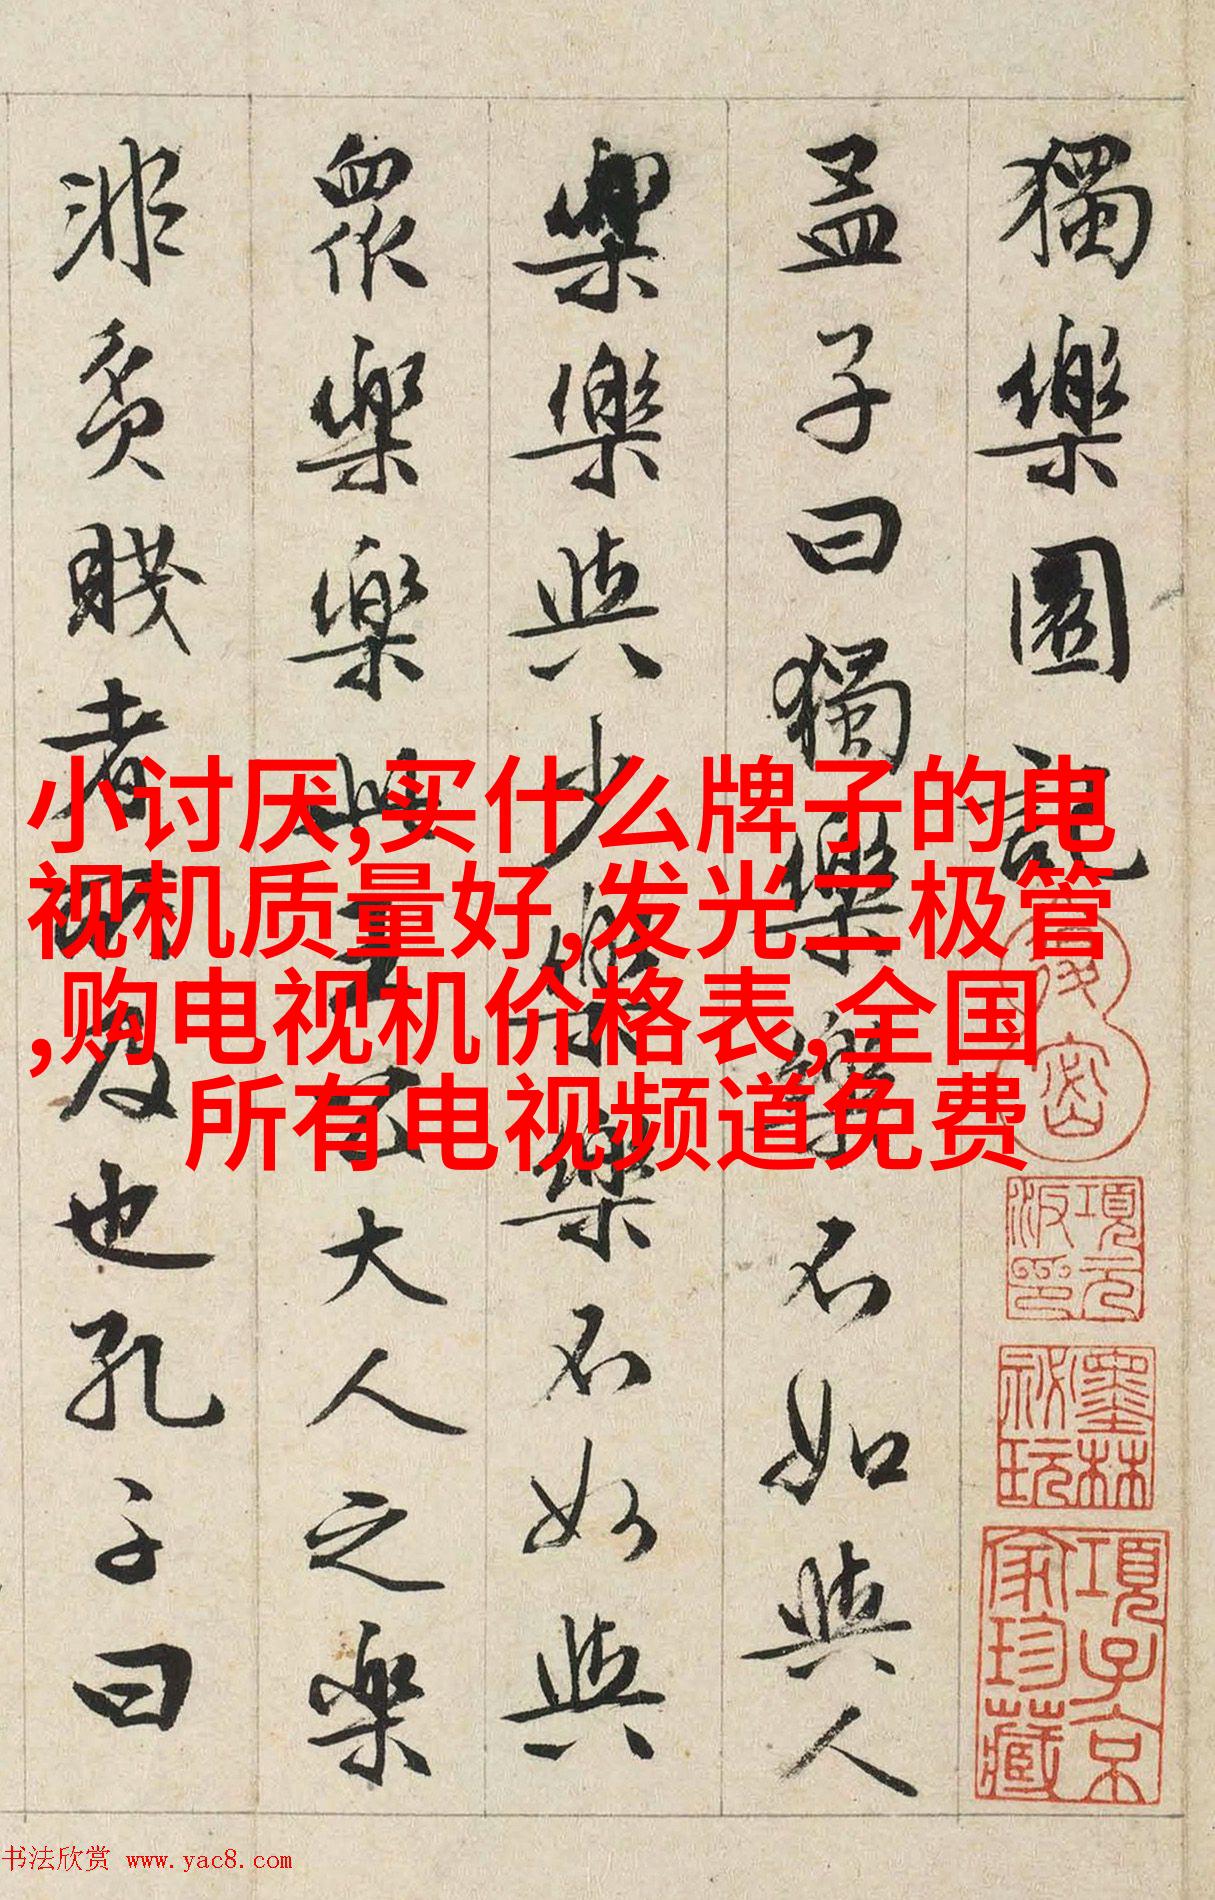 獨樂園記
孟子曰獨樂樂不如與人
樂樂與少樂樂不如與
眾樂樂此王公大人之樂
非貧賤者所及也孔子曰
小讨厌,买什么牌子的电
视机质量好,发光二极管
,购电视机价格表,全国
所有电视频道免费
項元
汴印
墨林
祕玩
項子京
家珍藏
书法欣赏 www.yac8.com